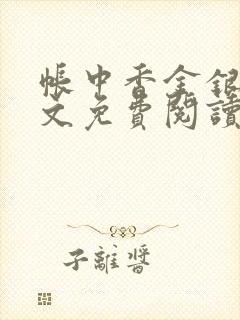 帳中香金銀
文免費閱讀
子離醬